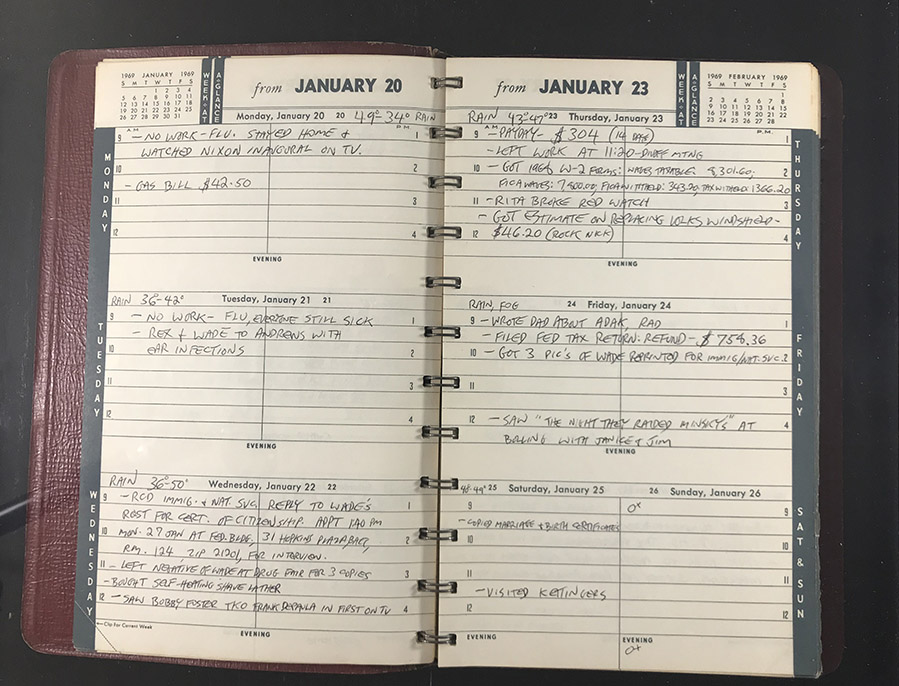 1969 JANUARY 1969
S M T W T F S
1 2 3 4
5 6 7 8 9 10 11
12 13 14 15 16 17 18
19 20 21 22 23 24 25
26 27 28 29 30 31
WEEK-AT
A-GLANCE
from JANUARY 20
Monday, January 20 20 49°-34° RAIN
MONDAY
A.M. P.M.
9 - NO WORK - FLU. STAYED HOME & 1
WATCHED NIXON INAUGURAL ON TV.
10 2
- GAS BILL $42.50
11 3
12 4
EVENING
RAIN 36°-42° Tuesday, January 21 21
TUESDAY
9 - NO WORK - FLU, EVERYONE STILL SICK 1
- REX & WADE TO ANDREWS WITH
10 EAR INFECTIONS 2
11 3
12 4
EVENING
RAIN 36°-50° Wednesday, January 22 22
WEDNESDAY
9 - RCD IMMIG. & NAT. SVC. REPLY TO WADE'S 1
RQST FOR CERT. OF CITIZENSHIP. APPT 1:40 PM
10 MON. 27 JAN AT FED BLDG. 31 HOPKINS PLAZA, BALT, 2
RM. 124 ZIP 21201, FOR INTERVIEW.
11 - LEFT NEGATIVE OF WADE AT DRUG FAIR FOR 3 COPIES 3
- BOUGHT SELF-HEATING SHAVE LATHER
12 - SAW BOBBY FOSTER TKO FRANK DEPAULA IN FIRST ON TV 4
Clip For Current Week
EVENING
from JANUARY 23
WEEK-AT
A-GLANCE
1969 FEBRUARY 1969
S M T W T F S
1
2 3 4 5 6 7 8
9 10 11 12 13 14 15
16 17 18 19 20 21 22
23 24 25 26 27 28
RAIN 43°-47° 23 Thursday, January 23
THURSDAY
A.M. P.M.
9 - PAYDAY - $304 (14 DAYS) 1
- LEFT WORK AT 11:20 - MTNG
10 - GOT 1968 W-2 FORMS: WAGES TAXABLE: 8,301.60; 2
FICA WAGES: 7,800.00; FICA WITHELD: 343.20; TAX WITHELD 1366.20
11 - RITA BROKE RED WATCH 3
- GOT ESTIMATE ON REPLACING WINDSHIELD -
12 $46.20 (ROCK NICK) 4
EVENING
RAIN, FOG 24 Friday, January 24
FRIDAY
9 - WROTE DAD ABOUT ADAK, RAD 1
- FILED FED TAX RETURN: REFUND - $758.36
10 - GOT 3 PIC'S OF WADE REPRINTED FOR IMMIG/NAT. SVC. 2
11 3
12 - SAW "THE NIGHT THEY RAIDED MINSKY'S" AT 4
BOLLING WITH JANICE & JIM
EVENING
25 Saturday, January 25
9
- COPIED MARRIAGE & BIRTH CERTIFICATES
10
11
- VISITED KETINGERS
12
EVENING
26 Sunday, January 26
SAT & SUN
9
10
11
12
EVENING